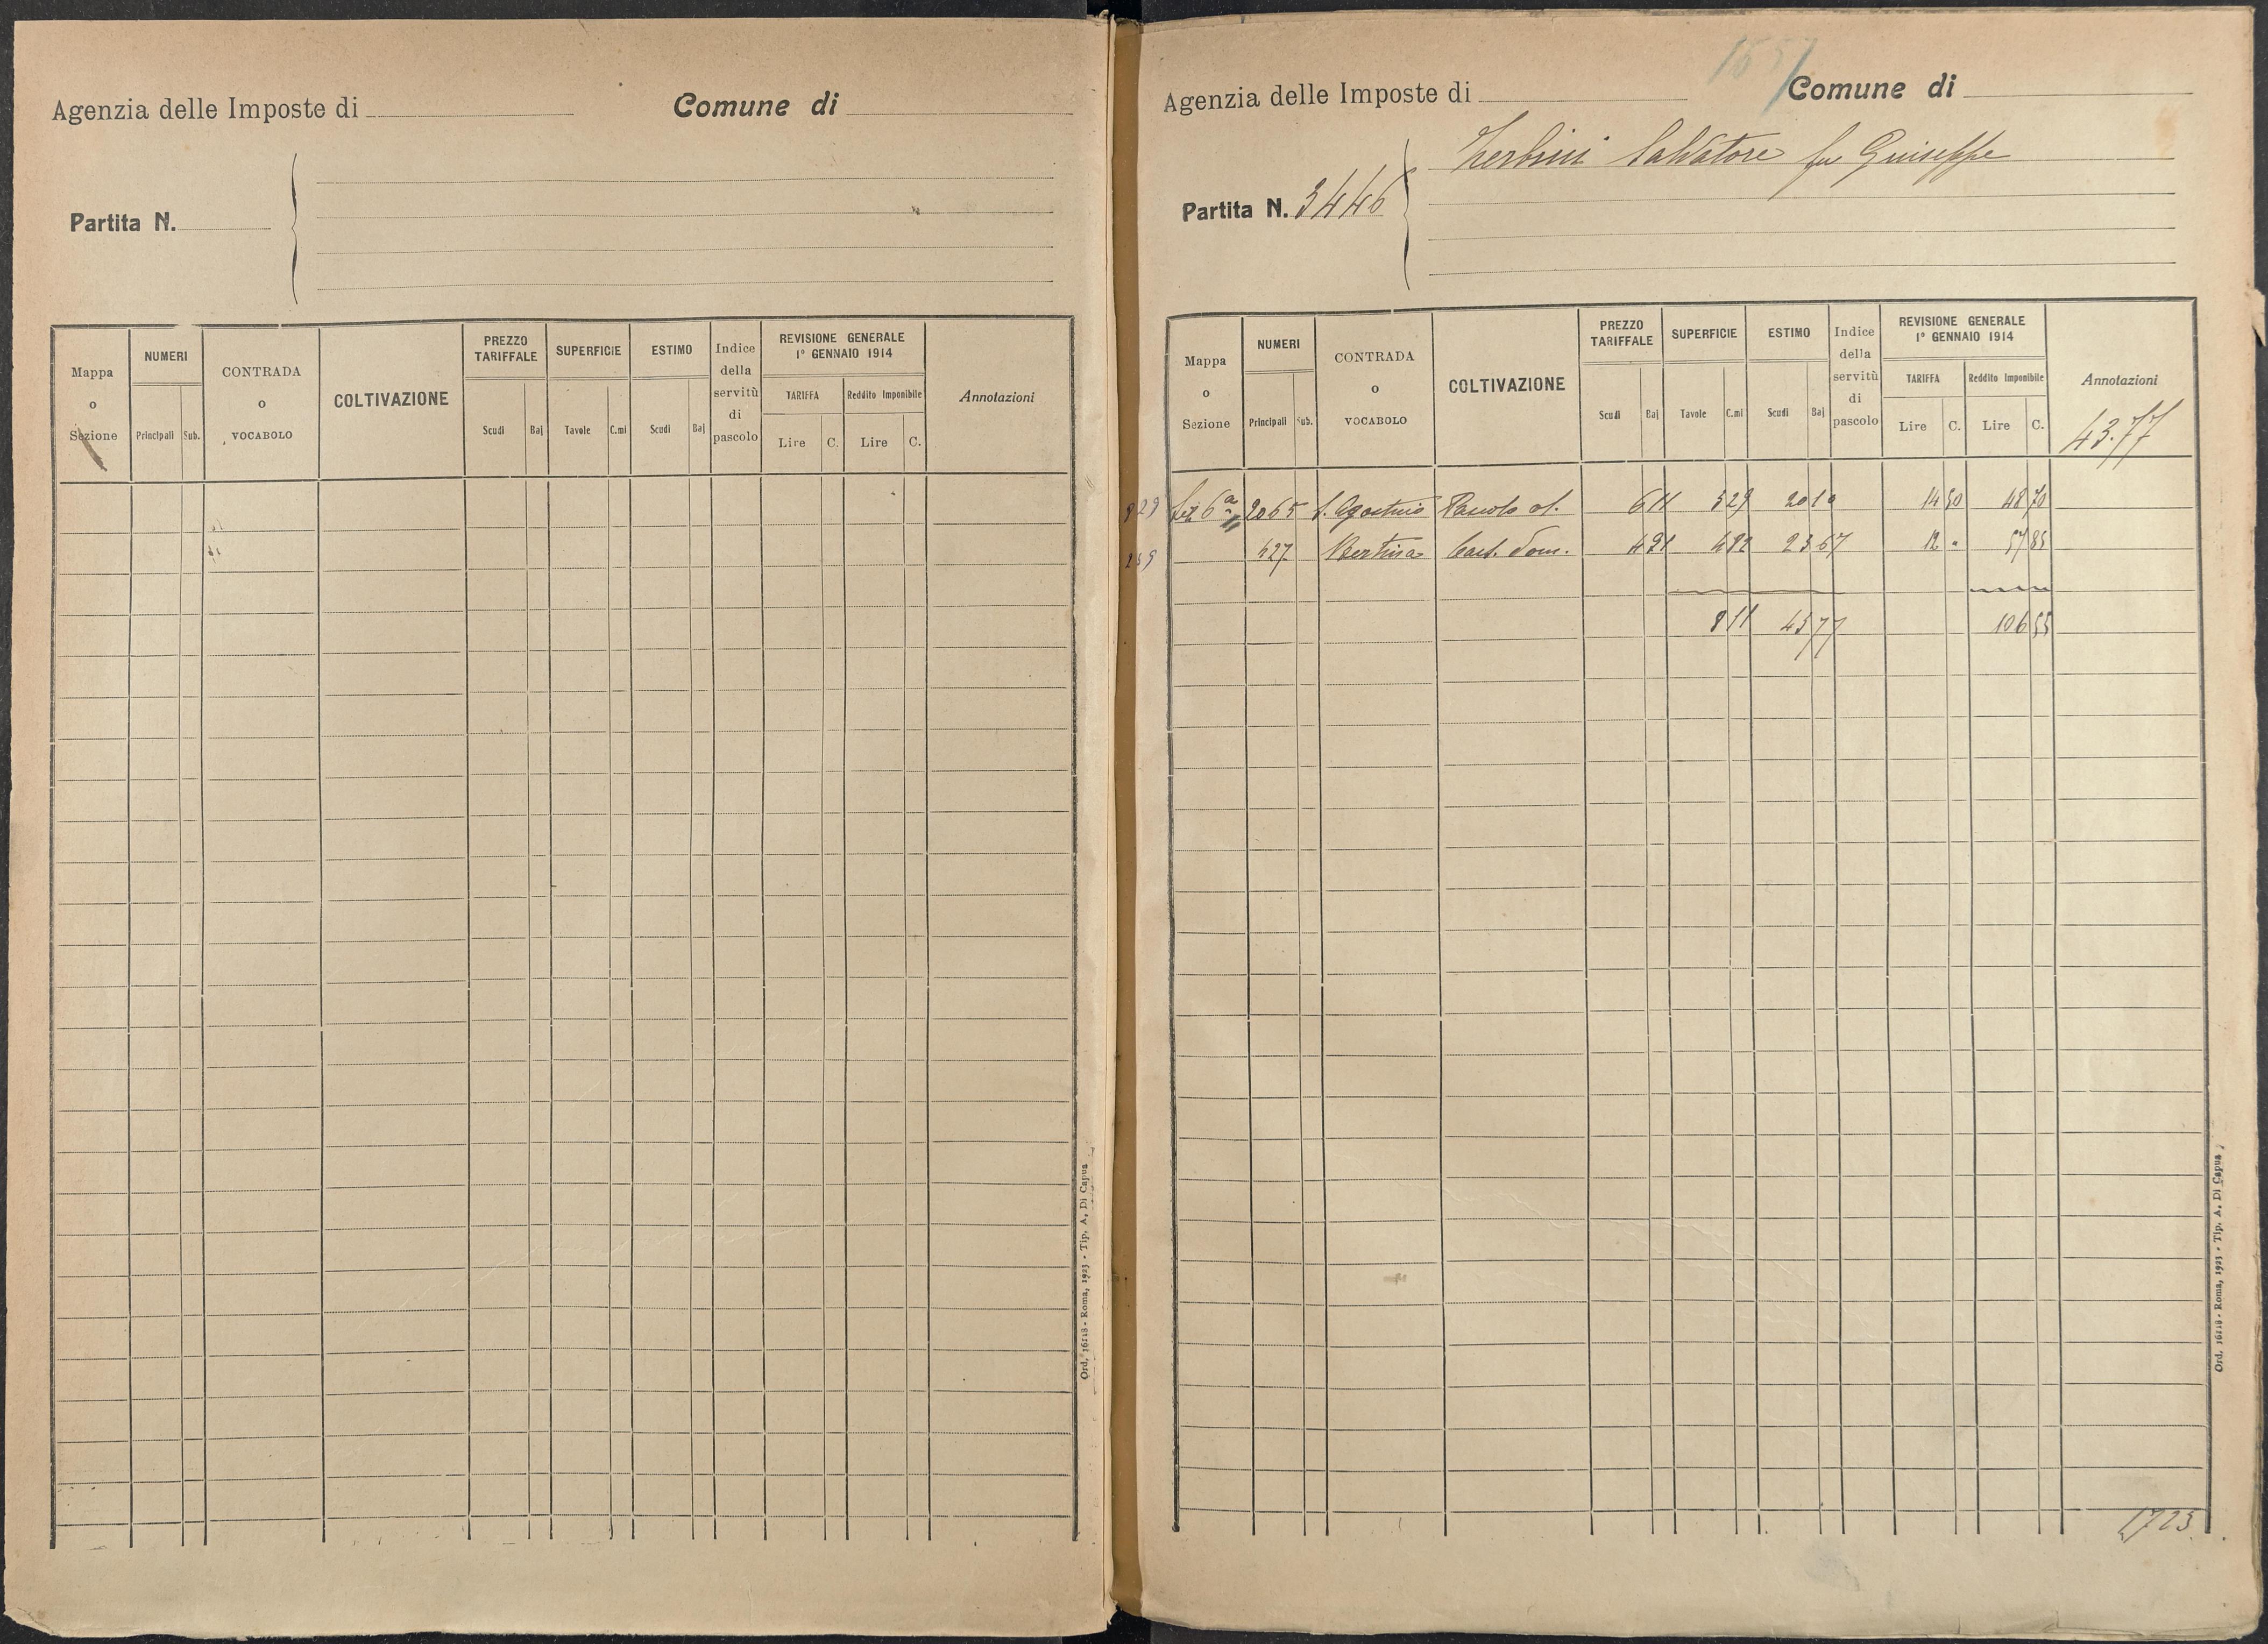 Agenzia delle Imposte di
Comune di
Partita N.
Mappa o Sezione
NUMERI
Principali Sub.
CONTRADA o VOCABOLO
COLTIVAZIONE
PREZZO TARIFFALE
Scudi Baj
SUPERFICIE
Tavole C.mi
ESTIMO
Scudi Baj
Indice della servitù di pascolo
REVISIONE GENERALE
1° GENNAIO 1914
TARIFFA
Lire C.
Reddito Imponibile
Lire C.
Annotazioni
Ord. 16118 - Roma, 1923 - Tip. A. Di Capua
Agenzia delle Imposte di
Comune di
1557
Zerbini Salvatore fu Guiseppe
Partita N. 3446
Mappa o Sezione
NUMERI
Principali Sub.
CONTRADA o VOCABOLO
COLTIVAZIONE
PREZZO TARIFFALE
Scudi Baj
SUPERFICIE
Tavole C.mi
ESTIMO
Scudi Baj
Indice della servitù di pascolo
REVISIONE GENERALE
1° GENNAIO 1914
TARIFFA
Lire C.
Reddito Imponibile
Lire C.
Annotazioni
43.77
829 Sez 6ª 2065 S. Agostino Pascolo ol. 611 329 20 10 14 80 48 70
259 427 Cast. dom. 491 482 23 67 12 " 57 85
811 43 77 106 55
1723
Ord. 16118 - Roma, 1923 - Tip. A. Di Capua